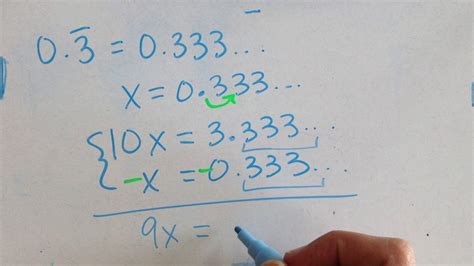 0.3̅ = 0.333...
x = 0.333...
10x = 3.333...
-x = -0.333...
9x =